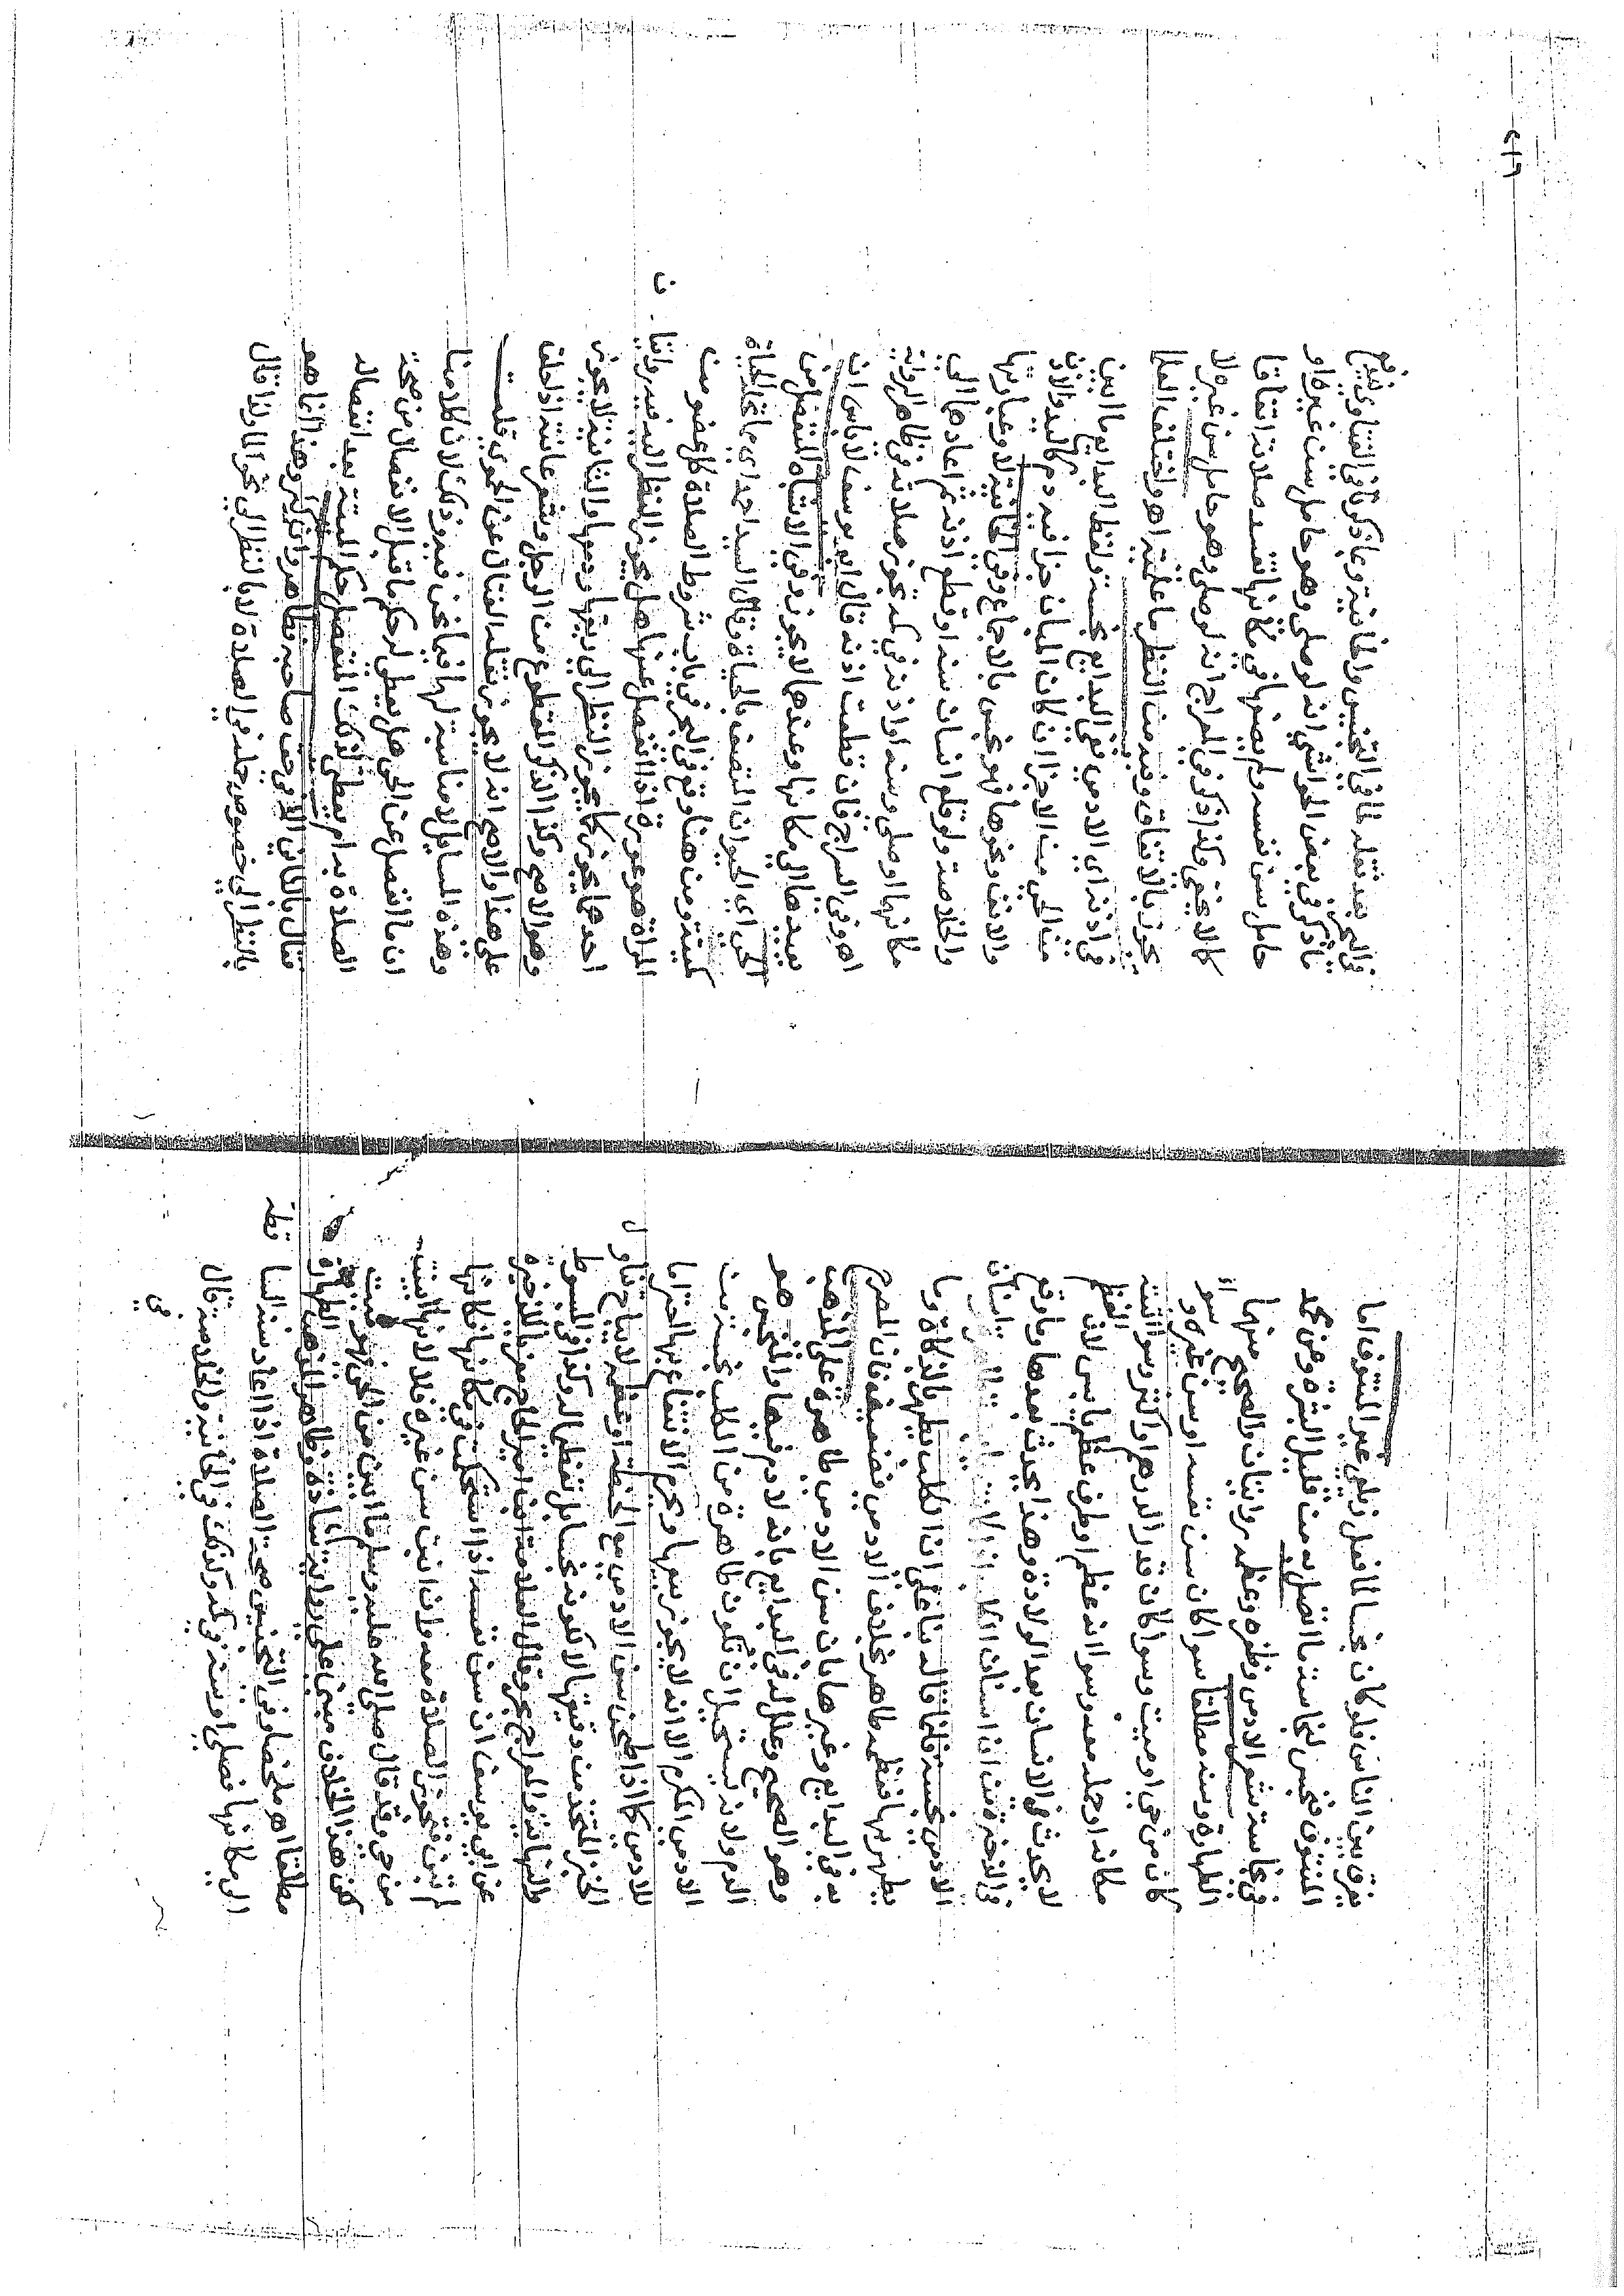 يفرق بين الناس فلو كان نجسا لما فعل زيلعي غير المنتوف اما
المنتوف فنجس لنجاسة ما اتصل به من قليل البشرة وعن محمد
في نجاسة شعر الادمي وظفره وعظمه روايتان والصحيح منهما
الطهارة وسنه مطلقا سوا كان سن نفسه او سن غيره وسوا
كان من حي او ميت وسوا كان قدر الدرهم او اكثر وسوا اثبته
مكانه او حمله معه وسوا انه عظم او طرف عظم يابس لان العظم
لا يحدث في الانسان بعد الولادة وهذا يحدث بعدها وما وقع
في الذخيرة من ان اسنان
الادمي نجسة فلما قاله بناء على ان الكلب يطهر بالذكاة وما
يطهر بها فعظمه طاهر بخلاف الادمي فضعيف فان المصرح
به في البدايع وغيرها بان سن الادمي طاهرة على المذهب
وهو الصحيح وعلل له في البدايع بانه لا دم فيها والنجس هو
الدم ولانه يستحيل ان تكون طاهرة من الكلب نجسة من
الادمي المكرم الا انه لا يجوز بيعها ويحرم الانتفاع بها احتراما
للادمي كما اذا طحن سن الادمي مع الحنطة او عظمه لا يباح تناول
الخبز المتخذ من دقيقها لا لكونه نجسا بل تعظيما له وكذا في المبسوط
والنهاية والمعراج بحر وقال العلامة ابن امير الحاج معزيا للذخيرة
عن ابي يوسف ان سن نفسه اذا استحكمت في مكانها فكانها
لم تبن فتجوز الصلاة معه وان اثبت سن غيره فلا لانها ابينت
من حي وقد قال صلى الله عليه وسلم ما ابين من الحي فهو ميت
لكن هذا الخلاف مبني على رواية شاذة وظاهر المذهب الطهارة
مطلقا اهـ ملخصا وفي التجنيس صحة الصلاة اذا اعاد سنه الساقطة
الى مكانها فصلى او سنه في كمه وكذلك في الخانية والخلاصة قال
في
في البحر بعد نقله لما في التجنيس والخانية وبما ذكرنا في الفتاوى يندفع
ما ذكر في بعض الحواشي انه لو صلى وهو حامل سن غيره او
حامل سن نفسه ولم يضعها في مكانها تفسد صلاته اتفاقا
كما لا يخفى وكذا ذكر في السراج انه لو صلى وهو حامل سن غيره لا
تجوز بالاتفاق وفيه من النظر ما علمته اهـ واختلف العلما
في اذنه اي الادمي ففي البدايع نجسة ولفظ البدايع ما ابين
من الحي من الاجزا ان كان المبان جزا فيه دم كاليد والاذن
والانف ونحوها فهو نجس بالاجماع وفي الخانية لا وعبارتها
والخلاصة ولو قلع انسان سنه او قطع اذنه ثم اعادها الى
مكانها او صلى وسنه او اذنه في كمه تجوز صلاته في ظاهر الرواية
اهـ وفي السراج فان قطعت اذنه قال ابو يوسف لا باس ان
يعيدها الى مكانها وعندهما لا يجوز وفي الاشباه المنفصل من
الحي اي الحيوان المتصف بالحياة وقال السيد احمد اي مما تحله الحياة
كميتته ومن هنا وقع في البحر في باب شروط الصلاة كل عضو من
المراة هو عورة اذا انفصل عنها هل يجوز النظر اليه فيه روايتان
احدهما يجوز كما يجوز النظر الى ريقها ودمعها والثانية لا يجوز
وهو الاصح وكذا الذكر المقطوع من الرجل وشعر عانته اذا حلق
على هذا والاصح انه لا يجوز نقله الفتال عن الحموي قلت
وهذه المسايل لا مناسبة لها فيما نحن فيه وذلك لان كلامنا
ان ما انفصل عن الحي هل يعطى له حكم ما قبل الانفصال من صحة
الصلاة به ام يعطى لذلك المنفصل حكم الميتة بعد انفصاله
فقال بالثاني الا في حق صاحبه فطاهر وان كثر وهذا انما هو
بالنظر الى خصوص حمله في الصلاة لا بالنظر الى نحو ولذا قال